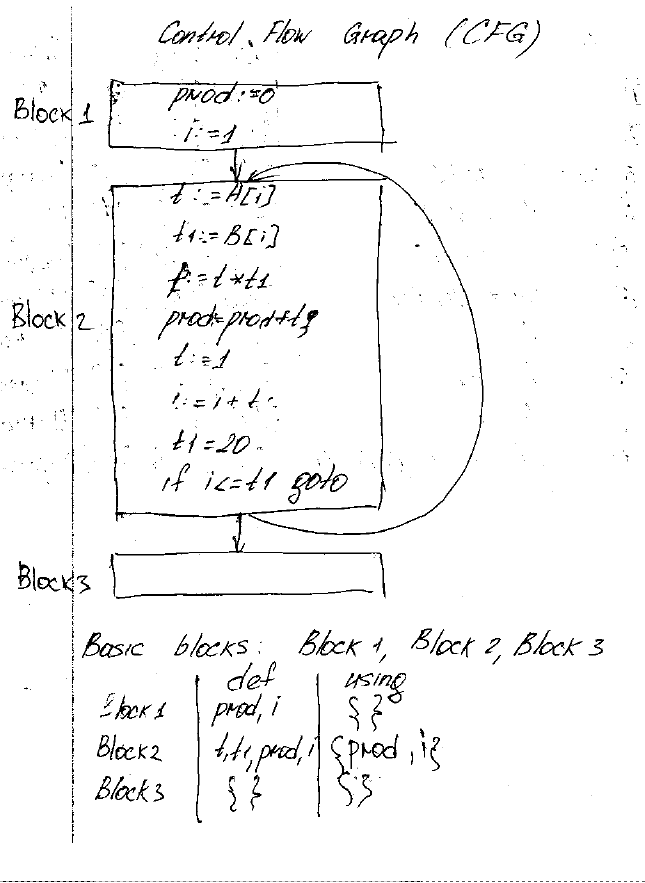 Control Flow Graph (CFG)
Block 1
prod:=0
i:=1
Block 2
t:=A[i]
t1:=B[i]
:=t*t1
t:=1
i:=i+t
t1=20
if i<=t1 goto
Block 3
Basic blocks: Block 1, Block 2, Block 3
def using
Block 1 prod, i { }
Block 2 t, t1, prod, i {prod, i}
Block 3 { } { }